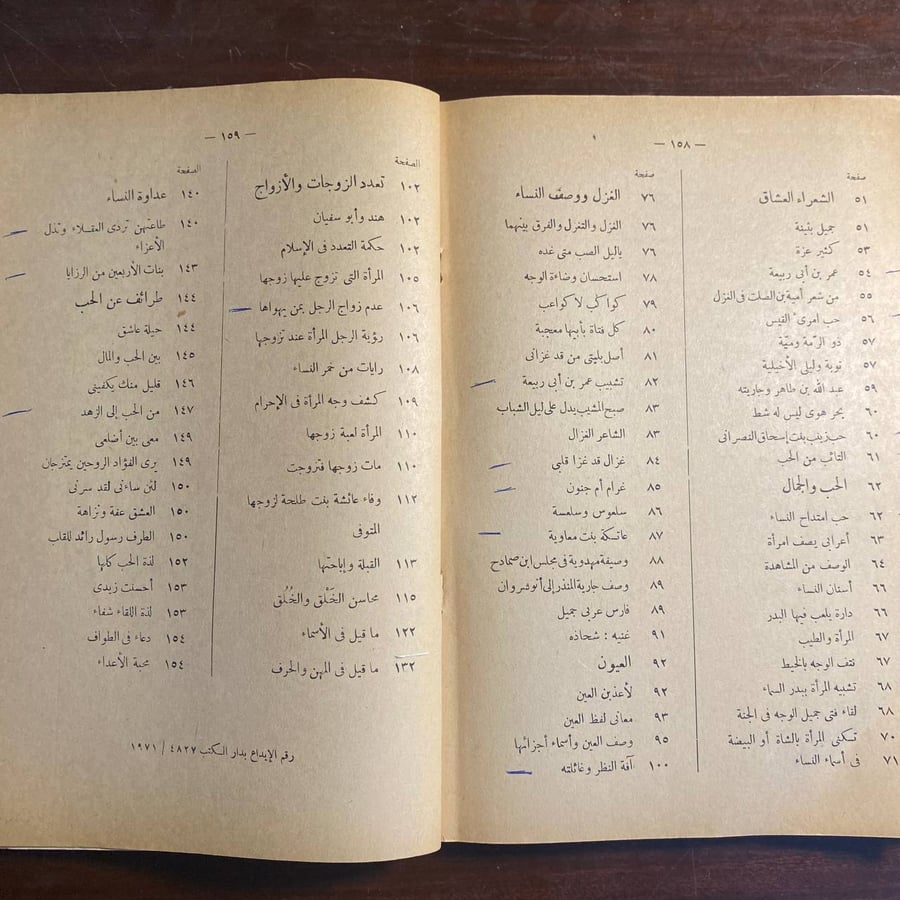 — ١٥٨ —
صفحة
٥١ الشعراء العشاق
٥١ جميل بثينة
٥٣ كثير عزة
٥٤ عمر بن أبى ربيعة
٥٥ من شعر أمية بن الصلت فى الغزل
٥٦ حب امرىء القيس
٥٧ ذو الرمّة وميّة
٥٧ توبة وليلى الأخيلية
٥٩ عبد الله بن طاهر وجاريته
٦٠ بحر هوى ليس له شط
٦٠ حب زينب بنت إسحاق النصرانى
٦١ التائب من الحب
٦٢ الحب والجمال
٦٢ حب امتداح النساء
٦٣ أعرابى يصف امرأة
٦٤ الوصف من المشاهدة
٦٦ أسنان النساء
٦٦ دارة يلعب فيها البدر
٦٧ المرأة والطيب
٦٧ نتف الوجه بالخيط
٦٨ تشبيه المرأة ببدر السماء
٦٨ لقاء فتى جميل الوجه فى الجنة
٧٠ تسكنى المرأة بالشاة أو البيضة
٧١ فى أسماء النساء
صفحة
٧٦ الغزل ووصف النساء
٧٦ الغزل والتغزل والفرق بينهما
٧٦ ياليل الصب متى غده
٧٨ استحسان وضاءة الوجه
٧٩ كواكب لا كواعب
٨٠ كل فتاة بأبيها معجبة
٨١ أصل بليتى من قد غزانى
٨٢ تشبيب عمر بن أبى ربيعة
٨٣ صبح المشيب يدل على ليل الشباب
٨٣ الشاعر الغزال
٨٤ غزال قد غزا قلبى
٨٥ غرام أم جنون
٨٦ سلعوس وسلعسة
٨٧ عاتكة بنت معاوية
٨٨ وصيفة مهدوية فى مجلس ابن صمادح
٨٩ وصف جارية المنذر إلى أنوشروان
٨٩ فارس عربى جميل
٩١ غنيه : شحاذه
٩٢ العيون
٩٢ لأعذبن العين
٩٣ معانى لفظ العين
٩٥ وصف العين وأسماء أجزائها
١٠٠ آفة النظر وغائلته
— ١٥٩ —
الصفحة
١٠٢ تعدد الزوجات والأزواج
١٠٢ هند وأبو سفيان
١٠٢ حكمة التعدد فى الإسلام
١٠٥ المرأة التى تزوج عليها زوجها
١٠٦ عدم زواج الرجل بمن يهواها
١٠٦ رؤية الرجل المرأة عند تزوجها
١٠٨ رايات من خمر النساء
١٠٩ كشف وجه المرأة فى الإحرام
١١٠ المرأة لعبة زوجها
١١٠ مات زوجها فتزوجت
١١٢ وفاء عائشة بنت طلحة لزوجها
المتوفى
١١٣ القبلة وإباحتها
١١٥ محاسن الخَلْق والخُلُق
١٢٢ ما قيل فى الأسماء
١٣٢ ما قيل فى المهن والحرف
الصفحة
١٤٠ عداوة النساء
١٤٠ طاعتهن تردى العقلاء وتذل
الأعزاء
١٤٣ بنات الأربعين من الرزايا
١٤٤ طرائف عن الحب
١٤٤ حيلة عاشق
١٤٥ بين الحب والمال
١٤٦ قليل منك يكفينى
١٤٧ من الحب إلى الزهد
١٤٩ معى بين أضلعى
١٤٩ يرى الفؤاد الروحين يمتزجان
١٥٠ لئن ساءنى لقد سرنى
١٥٠ العشق عفة ونزاهة
١٥٠ الطرف رسول رائد للقلب
١٥٢ لذة الحب كلها
١٥٣ أحسنت زيدى
١٥٣ لذة اللقاء شفاء
١٥٤ دعاء فى الطواف
١٥٤ محبة الأعداء
رقم الإيداع بدار الكتب ٤٨٢٧ / ١٩٧١